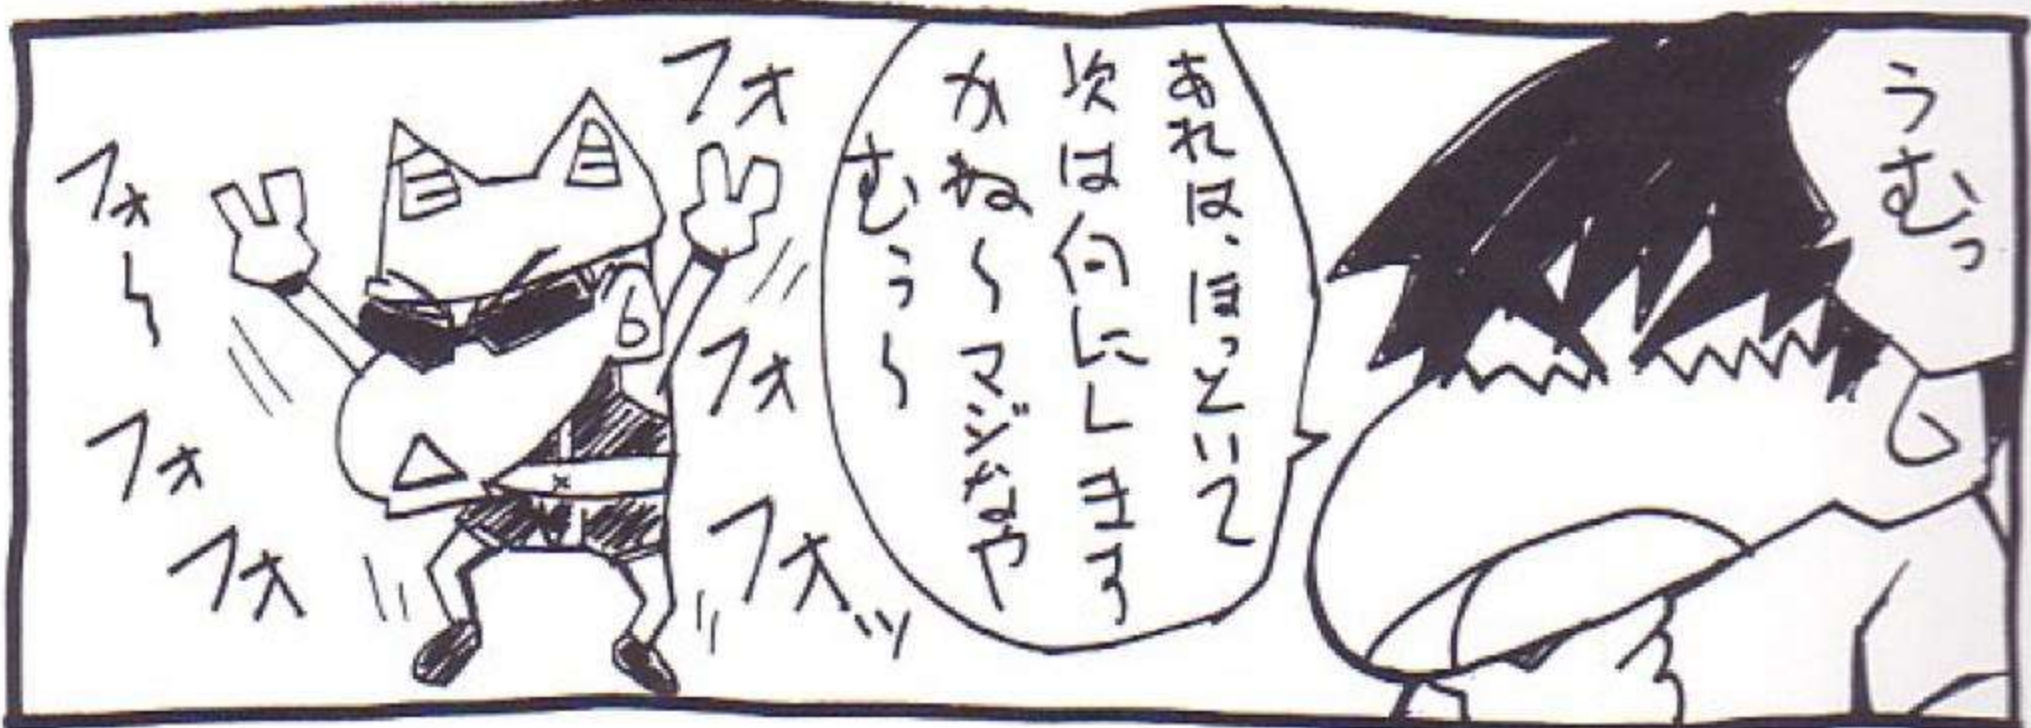 うむっ
あれは、ほっといて
次は何にします
かね〜マジなや
むぅ〜
フォ
フォ
フォッ
フォ〜
フォ
フォ